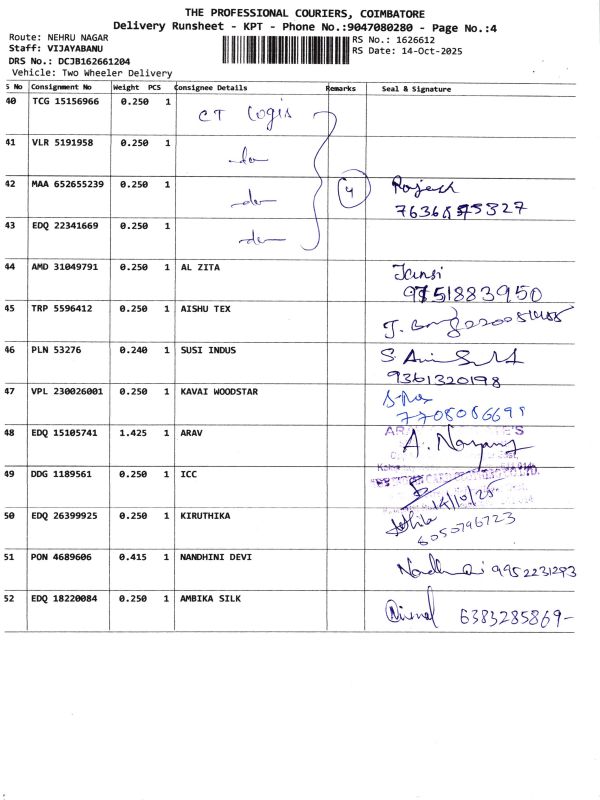 THE PROFESSIONAL COURIERS, COIMBATORE
Delivery Runsheet - KPT - Phone No.:9047080280 - Page No.:4
Route: NEHRU NAGAR
RS No.: 1626612
Staff: VIJAYABANU
RS Date: 14-Oct-2025
DRS No.: DCJB162661204
Vehicle: Two Wheeler Delivery
S No Consignment No Weight PCS Consignee Details Remarks Seal & Signature
40 TCG 15156966 0.250 1 CT Logis
41 VLR 5191958 0.250 1 -do-
42 MAA 652655239 0.250 1 -do- 4 Rajesh
43 EDQ 22341669 0.250 1 -do-
44 AMD 31049791 0.250 1 AL ZITA Jansi
9751883950
45 TRP 5596412 0.250 1 AISHU TEX
46 PLN 53276 0.240 1 SUSI INDUS
9361320198
47 VPL 230026001 0.250 1 KAVAI WOODSTAR
48 EDQ 15105741 1.425 1 ARAV
49 DDG 1189561 0.250 1 ICC 14/10/25
50 EDQ 26399925 0.250 1 KIRUTHIKA
6050796723
51 PON 4689606 0.415 1 NANDHINI DEVI 9952231293
52 EDQ 18220084 0.250 1 AMBIKA SILK Nirmal 6383285869-